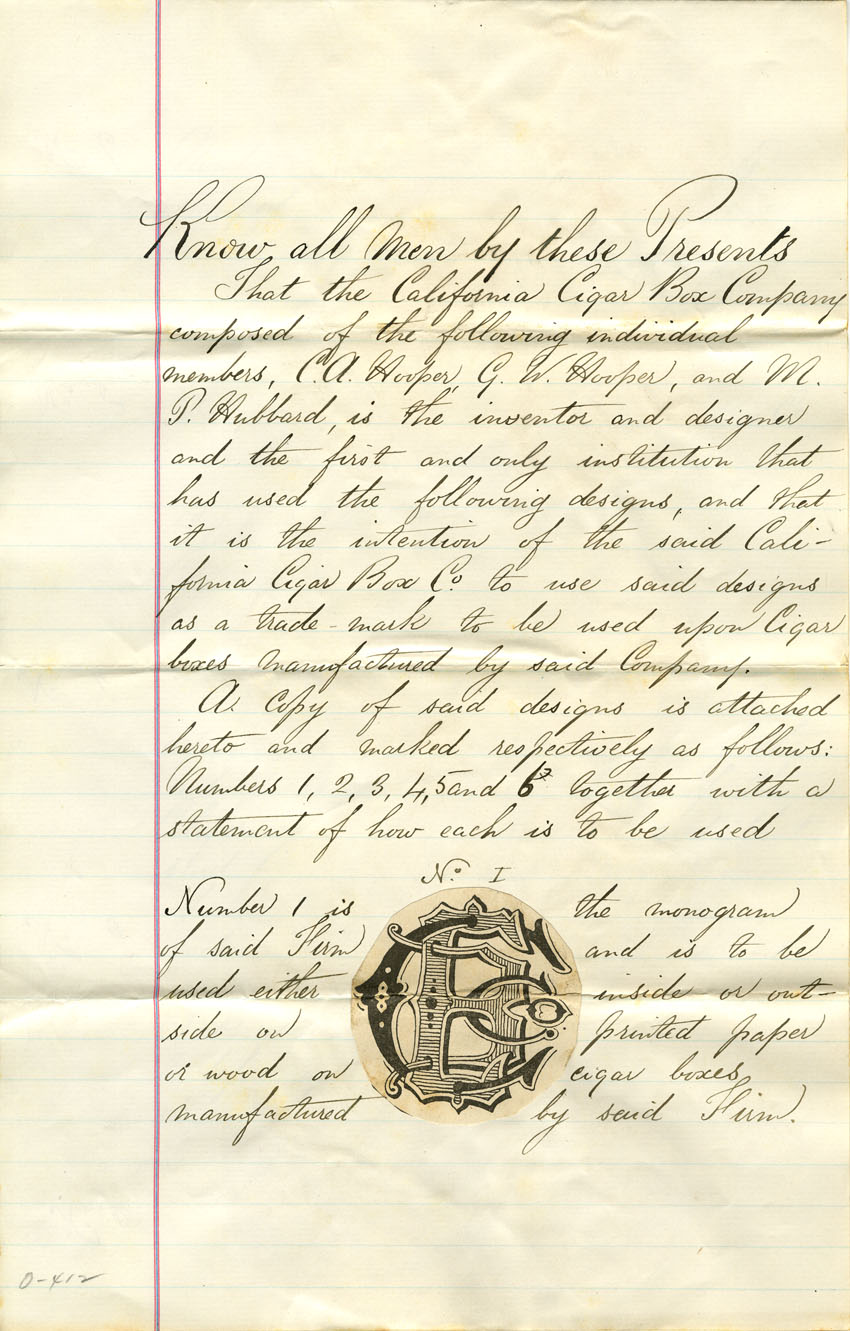 Know all Men by these Presents
That the California Cigar Box Company
composed of the following individual
members, C. A. Hooper, G. W. Hooper, and M.
P. Hubbard, is the inventor and designer
and the first and only institution that
has used the following designs, and that
it is the intention of the said Cali-
fornia Cigar Box Co. to use said designs
as a trade-mark to be used upon Cigar
boxes manufactured by said Company.
A copy of said designs is attached
hereto and marked respectively as follows:
Numbers 1, 2, 3, 4, 5 and 6 together with a
statement of how each is to be used
No. I
Number 1 is the monogram
of said Firm and is to be
used either inside or out-
side on printed paper
or wood on cigar boxes
manufactured by said Firm.
0-412